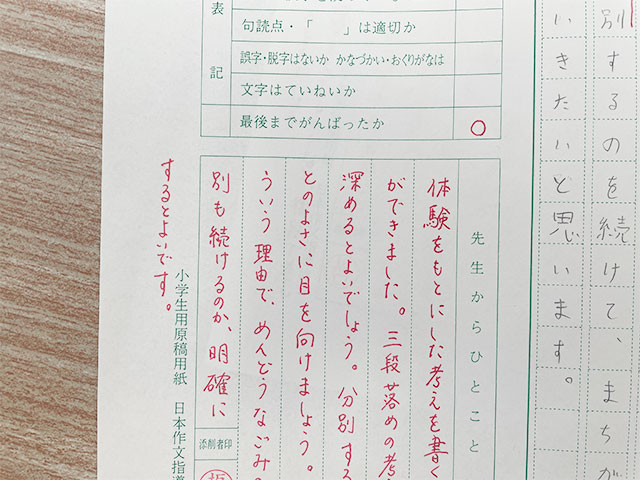 別するのを続けて、まちが
いきたいと思います。
表記
句読点・「　　」は適切か
誤字・脱字はないか かなづかい・おくりがなは
文字はていねいか
最後までがんばったか ○
先生からひとこと
体験をもとにした考えを書く
ができました。三段落めの考
深めるとよいでしょう。分別する
とのよさに目を向けましょう。
ういう理由で、めんどうなごみの
別も続けるのか、明確に
するとよいです。
添削者印
小学生用原稿用紙 日本作文指導